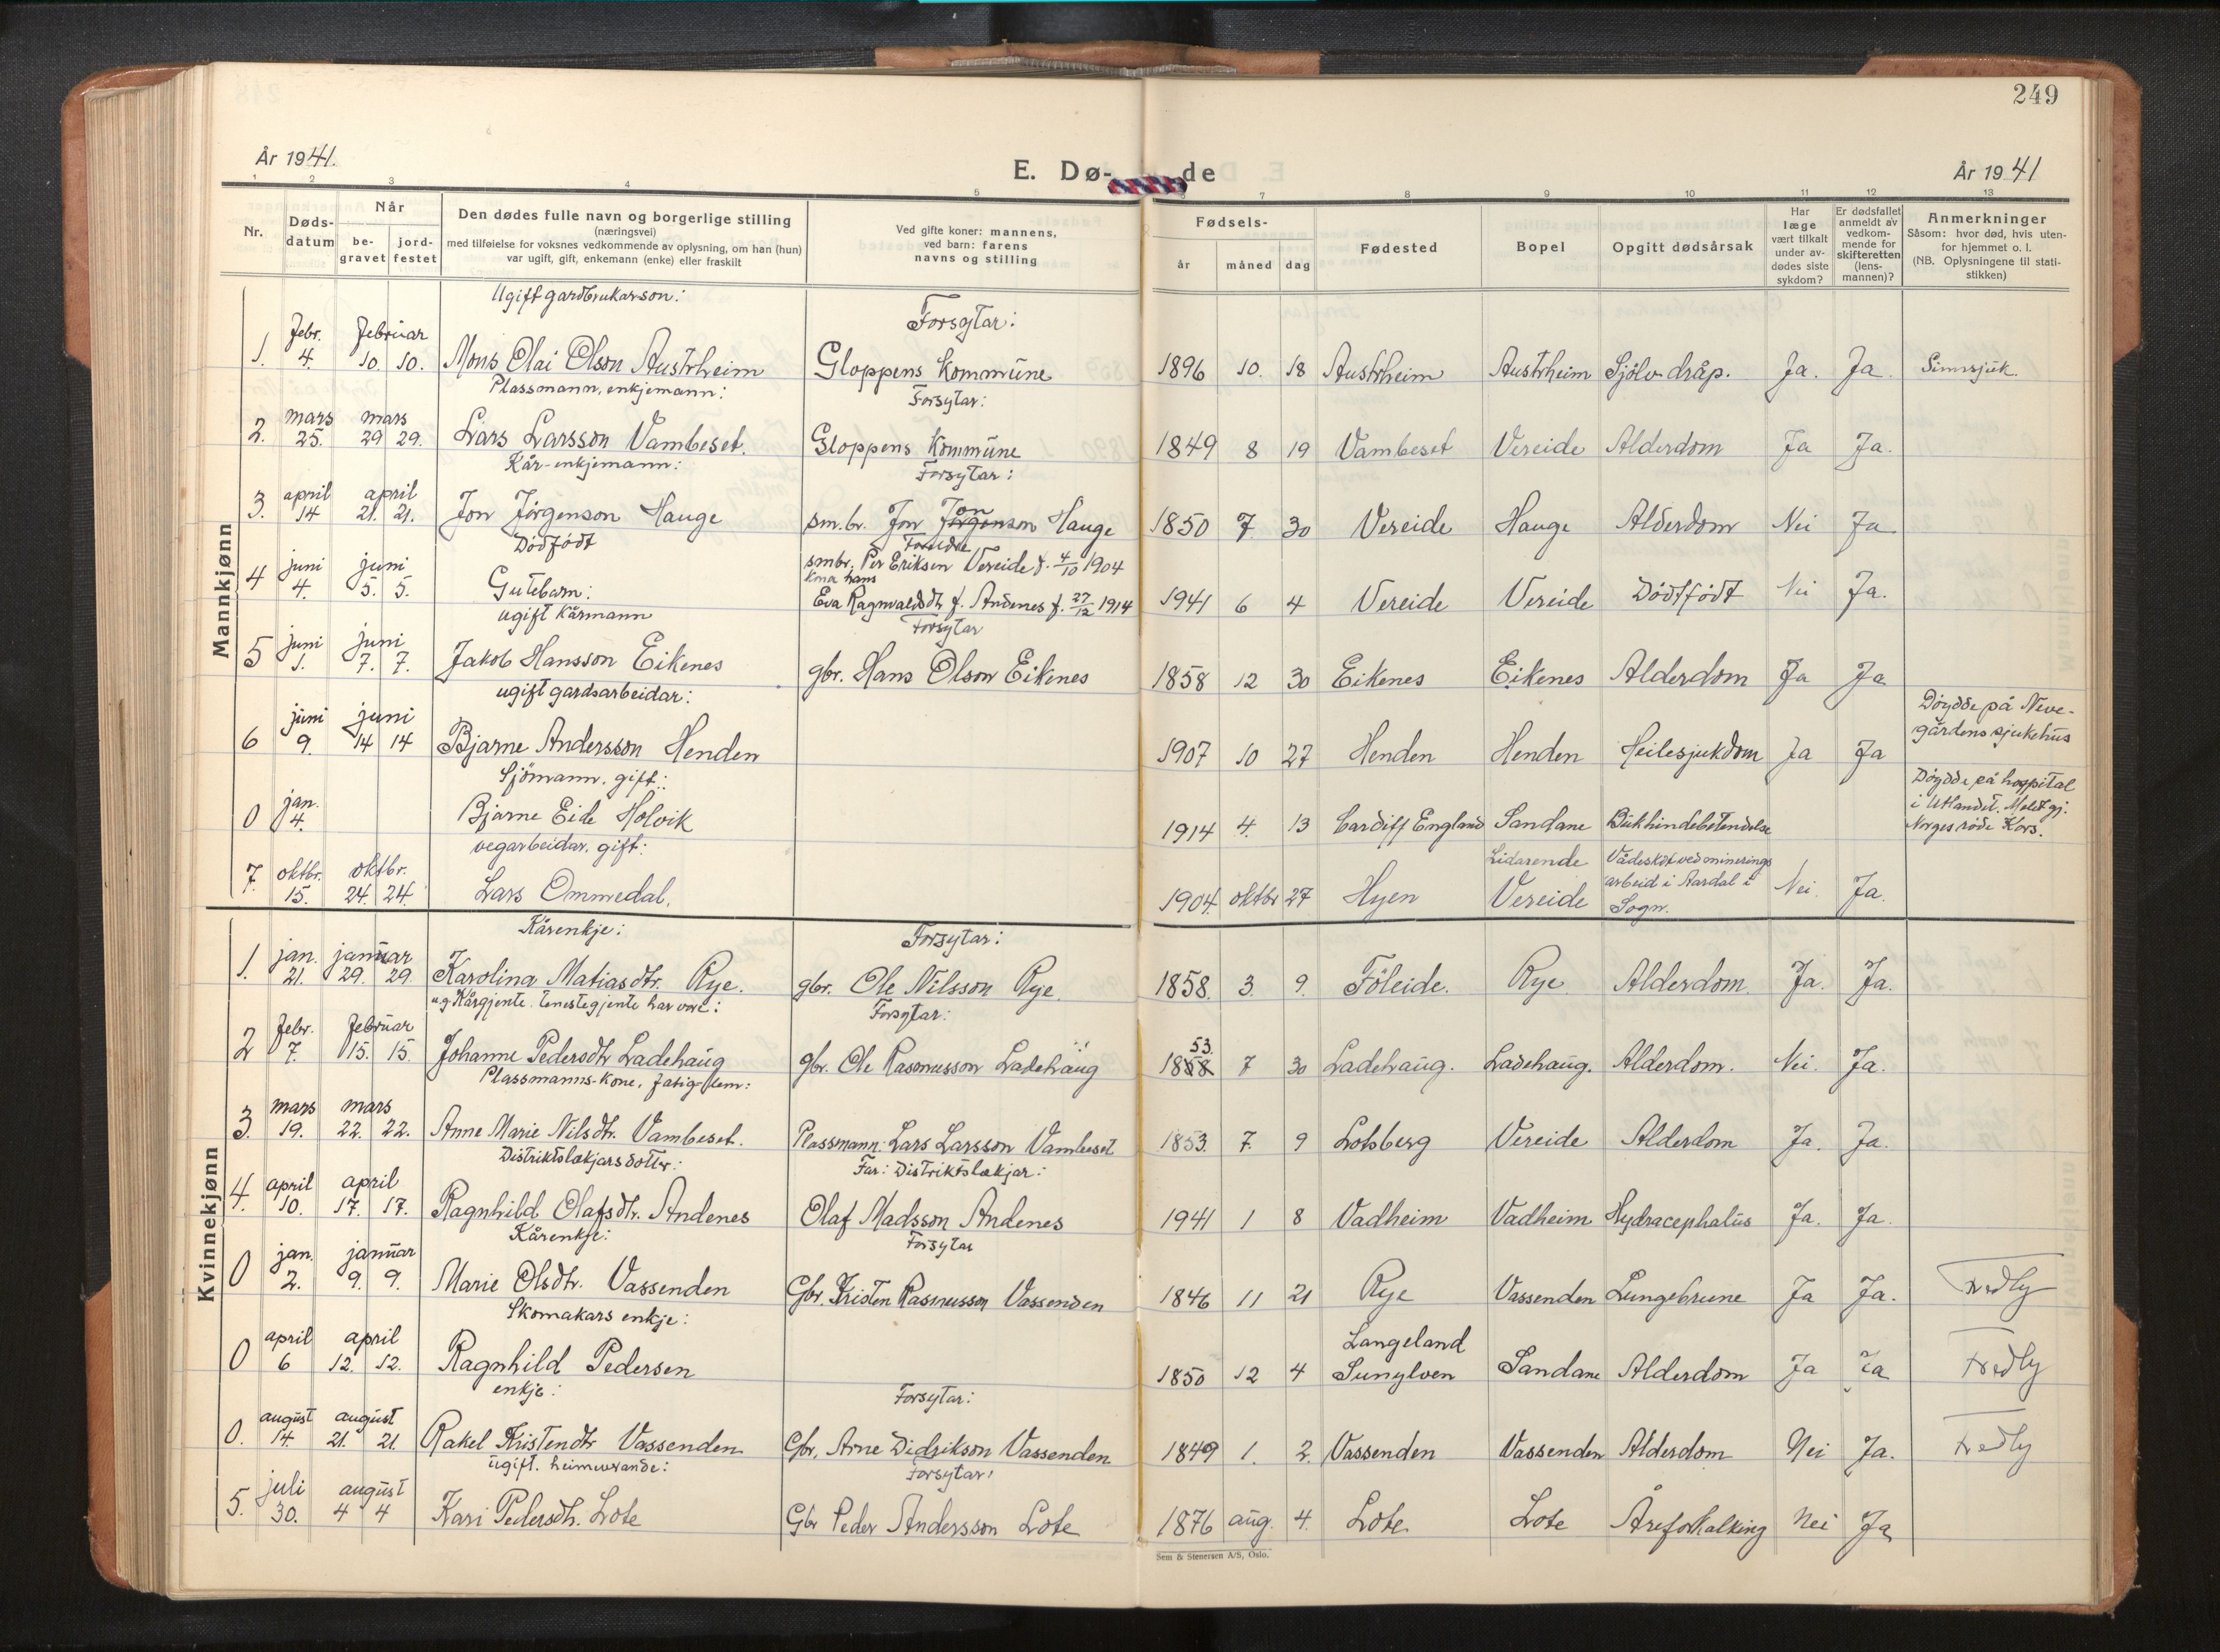 249
År 1941.
E. Dø-de
År 1941
1 2 3 4 5 7 8 9 10 11 12 13
Nr.
Døds-
datum
Når
be-
gravet
jord-
festet
Den dødes fulle navn og borgerlige stilling
(næringsvei)
med tilføielse for voksnes vedkommende av oplysning, om han (hun)
var ugift, gift, enkemann (enke) eller fraskilt
Ved gifte koner: mannens,
ved barn: farens
navns og stilling
Fødsels-
år måned dag
Fødested
Bopel
Opgitt dødsårsak
Har
læge
vært tilkalt
under av-
dødes siste
sykdom?
Er dødsfallet
anmeldt av
vedkom-
mende for
skifteretten
(lens-
mannen)?
Anmerkninger
Såsom: hvor død, hvis uten-
for hjemmet o. l.
(NB. Oplysningene til stati-
stikken)
Mannkjønn
Ugift gardbrukarson: Forsytar:
Febr. Februar
1. 4. 10. 10. Mons Olai Olson Austrheim Gloppens Kommune 1896 10. 18 Austrheim Austrheim Sjölvdråp. Ja. Ja. Sinnssjuk.
Plassmann, enkjemann: Forsytar:
mars mars
2. 25. 29 29. Lars Larsson Vambeset. Gloppens Kommune 1849 8 19 Vambeset Vereide Alderdom Ja Ja.
Kår-enkjemann: Forsytar:
april april
3. 14 21. 21. Jon Jörgenson Hauge sm.br. Jon Jorgenson Hauge 1850 7 30 Vereide Hauge Alderdom Nei Ja
Jon
Dödfödt Foreldre
juni juni smbr. Per Eriksen Vereide f. 4/10 1904
kona hans
4 4. 5. 5. Gutebarn: Eva Ragnvaldsdtr f. Andenes f. 27/12 1914 1941 6 4 Vereide Vereide Dödfödt Nei Ja.
ugift Kårmann Forsytar
juni juni
5 1. 7. 7. Jakob Hansson Eikenes gbr. Hans Olson Eikenes 1858 12 30 Eikenes Eikenes Alderdom Ja Ja
ugift gardsarbeidar:
juni juni
6 9. 14 14 Bjarne Andersson Henden 1907 10 27 Henden Henden Heilesjukdom Ja Ja
Döydde på Neve-
gårdens sjukehus
Sjömann. gift:
jan.
0 4. Bjarne Eide Holvik 1914 4. 13 Cardiff England Sandane Bukhindebetendelse
Döydde på hospital
i Utlandet. Meldt gj.
Norges röde Kors.
vegarbeidar. gift:
oktbr. oktbr.
7. 15. 24. 24. Lars Ommedal. 1904. oktbr 27 Hyen Lidarende
Vereide Vådeskot ved minerings
arbeid i Aardal i
Sogn. Nei. Ja.
Kvinnekjønn
Kårenkje: Forsytar:
jan. januar
1. 21. 29. 29. Karolina Matiasdtr. Rye. gbr. Ole Nilsson Rye. 1858. 3. 9. Föleide. Rye Alderdom Ja. Ja.
ug. Kårgjente. tenestegjente har vore: Forsytar:
Febr. Februar
2 7. 15. 15. Johanne Pedersdtr Ladehaug gbr. Ole Rasmusson Ladehaug 1858 7 30 Ladehaug. Ladehaug. Alderdom. Nei. Ja.
53.
Plassmanns-Kone, fatig-lem:
mars mars
3. 19. 22. 22. Anne Marie Nilsdtr. Vambeset. Plassmann: Lars Larsson Vambeset 1853. 7. 9 Lotsberg Vereide Alderdom Ja. Ja.
Distriktslækjarsdotter: Far: Distriktslækjar:
april april
4. 10. 17. 17. Ragnhild Olafsdtr. Andenes Olaf Madsson Andenes 1941 1 8 Vadheim Vadheim Hydracephalus Ja. Ja.
Kårenkje: Forsytar
jan. januar
0 2. 9. 9. Marie Olsdtr. Vassenden Gbr. Kristen Rasmusson Vassenden 1846 11 21 Rye Vassenden Lungebrune Ja Ja. Fredly
Skomakars enkje:
april april
0 6 12. 12. Ragnhild Pedersen 1850 12 4 Langeland
Sunylven Sandane Alderdom Ja Ja Fredly
enkje: Forsytar:
august august
0. 14. 21. 21. Rakel Kristendtr Vassenden Gbr. Arne Didrikson Vassenden 1849 1. 2. Vassenden Vassenden Alderdom Nei Ja. Fredly
ugift. heimeverande: Forsytar:
juli august
5. 30. 4 4 Kari Pedersdtr. Lote Gbr Peder Andersson Lote 1876 aug. 4. Lote Lote Åreforkalking Nei Ja
Sem & Stenersen A/S, Oslo.